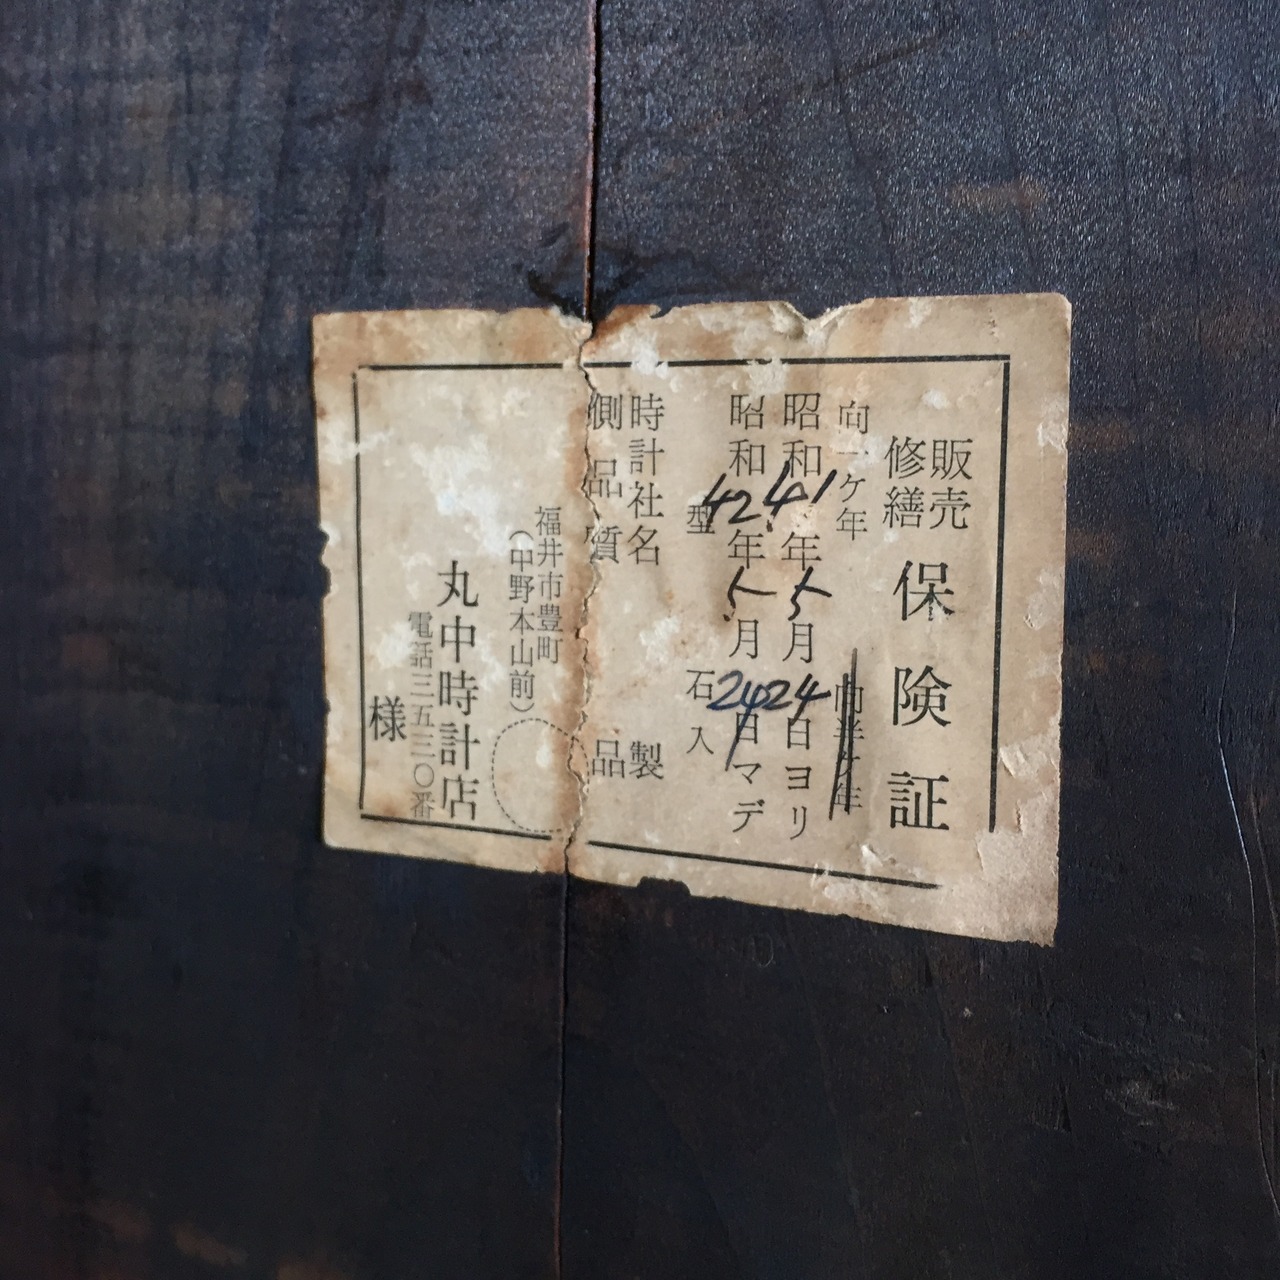 販売
修繕
保険証
向一ケ年
向半ケ年
昭和41年5月24日ヨリ
昭和42年5月24日マデ
型 石入
時計社名 製
側品質 品
福井市豊町
(中野本山前)
丸中時計店
電話三五三〇番
様